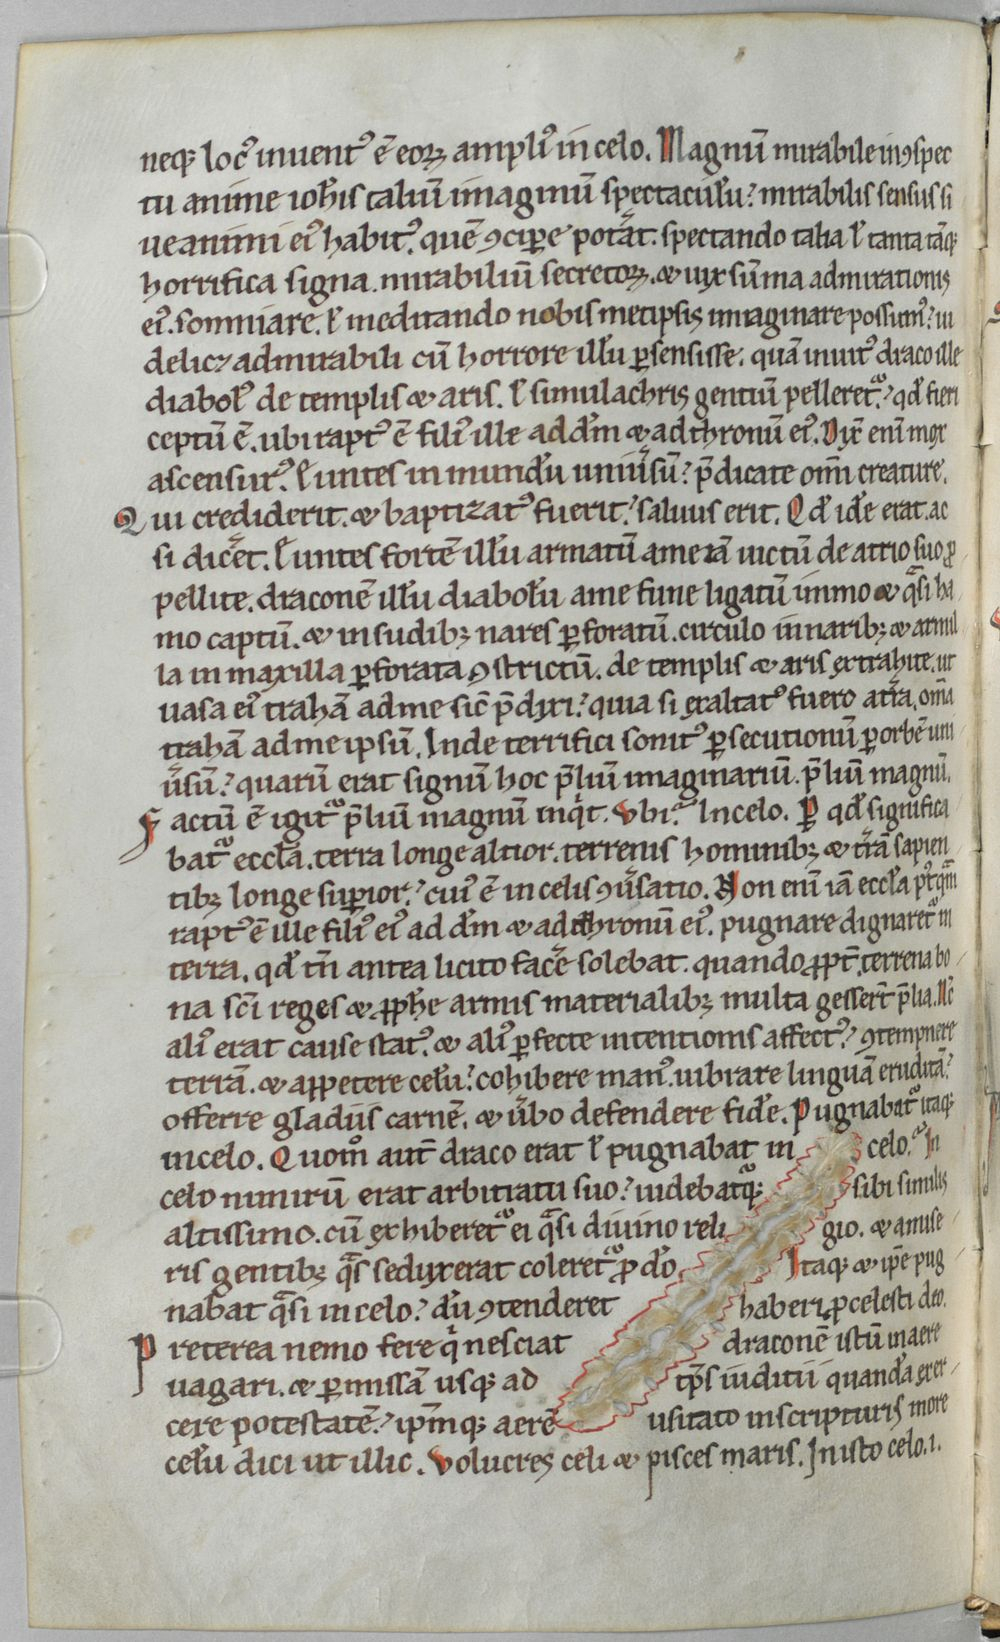 neqꝫ locꝰ inuentꝰ ē eoꝝ ampliꝰ in celo. Magnū mirabile in ꝯspec
tu anime ioħis taliū imaginū spectaculū? mirabilis sensus si
ue animi eiꝰ habitꝰ. quē ꝯciꝑe potat̃. spectando talia ł tanta tāqꝫ
horrifica signa. mirabiliū secretoꝝ. ⁊ uix sūma admirationis
eiꝰ. somniare. ł meditando nobis metipsis imaginare possumꝰ? ui
delicꝫ admirabili cū horrore illū ꝑsensisse. quā inuitꝰ draco ille
diabolꝰ de templis ⁊ aris. ł simulachris gentiū pelleret᷑? qđ fieri
ceptū ē. ubi raptꝰ ē filiꝰ ille ad dm̄ ⁊ ad thronū eiꝰ. Dix̄ enī mox
ascensurꝰ. Euntes in mundū uniūsū? p̄dicate om̄i creature.
Qui crediderit. ⁊ baptizatꝰ fuerit? saluus erit. Qđ idē erat. ac
si dicet̃. Euntes fortē illū armatū a me iā uictū de atrio suo ꝓ
pellite. draconē illū diabolū a me fune ligatū immo ⁊ q̄si ha
mo captū. ⁊ in sudibꝫ nares ꝑforatū. circulo in naribꝫ ⁊ armil
la in maxilla ꝑforata ꝯstrictū. de templis ⁊ aris extrahite. ut
uasa eiꝰ trahā ad me sic̄ p̄dixi? quia si exaltatꝰ fuero a tr̄a. om̄a
trahā ad me ipsū. Inde terrifici sonitꝰ ꝑsecutionū ꝑ orbē uni
ūsū? quarū erat signū hoc p̄liū imaginariū. p̄liū magnū.
Factū ē igit᷑ p̄liū magnū inqͥt. Vbi? In celo. Ꝑ qđ significa
bat᷑ eccl̄a. terra longe altior. terrenis hominibꝫ ⁊ tr̄ā sapien
tibꝫ longe suꝑior? cuiꝰ ē in celis ꝯūsatio. Non enī iā eccl̄a pꝰtqᷓm
raptꝰ ē ille filiꝰ eiꝰ ad dm̄ ⁊ ad thronū eiꝰ. pugnare dignaret᷑ in
terra. qđ tn̄ antea licito facē solebat. quando ꝓpt̄ terrena bo
na sc̄i reges ⁊ ꝓph̄e armis materialibꝫ multa gesserт̄ p̄lia. Nc̄
aliꝰ erat cause statꝰ. ⁊ aliꝰ ꝑfecte intentionis affectꝰ? ꝯtempnere
terrā. ⁊ appetere celū? cohibere manꝰ. uibrare linguā eruditā?
offerre gladiis carnē. ⁊ ūbo defendere fidē. Pugnabat᷑ itaqꝫ
in celo. Quom̊ aut̄ draco erat ł pugnabat in celo? In
celo nimirū erat arbitratu suo? uidebat᷑qꝫ sibi similis
altissimo. cū exhiberet᷑ ei q̄si diuino reli gio. ⁊ a mise
ris gentibꝫ q̄s seduxerat coleret᷑ ꝓ dō. Itaqꝫ ⁊ ip̄e pug
nabat q̄si in celo? dū ꝯtenderet haberi ꝓ celesti deo.
Preterea nemo fere qͥ nesciat draconē istū in aere
uagari. ⁊ ꝑmissā usqꝫ ad tp̄s iuditii quandā exer
cere potestatē? ip̄m̄qꝫ aerē usitato in scripturis more
celū dici ut illic. Volucres celi ⁊ pisces maris. In isto celo .i.